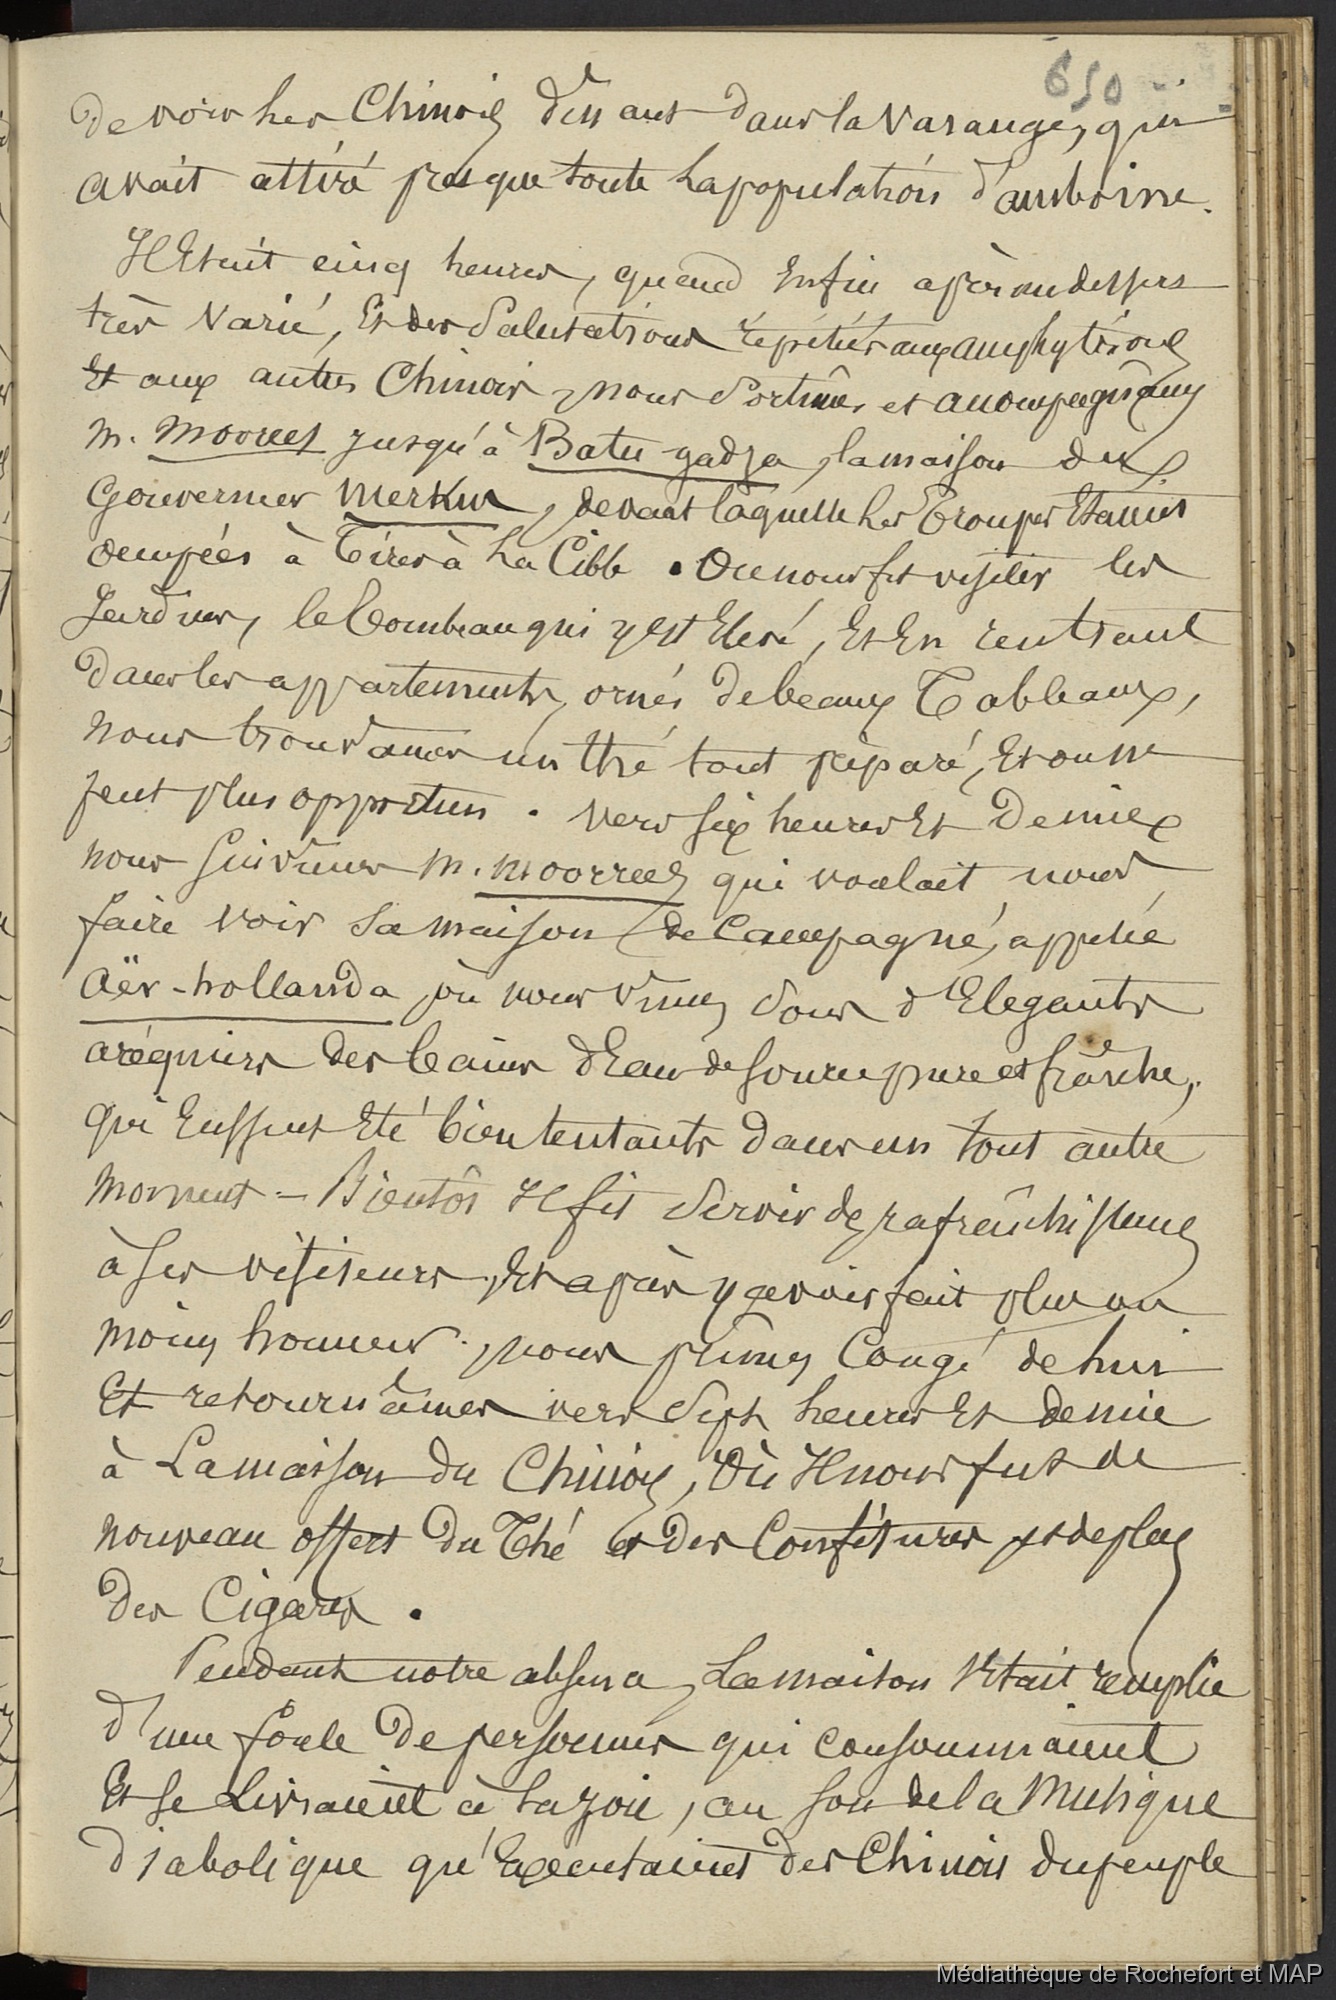 650
de voir les Chinois dinant dans la varangue, qui
avait attiré presque toute la population d'amboine.
Il Etait cinq heures, quand Enfin après un dessers
très Varié, Et des Salutations répétées aux amphytrions
Et aux autres Chinois, nous Sortimes et accompagnâmes
M. Moorrees jusqu'à Batu-gadja, la maison du
Gouverneur Merkus, devant laquelle les Troupes Etaient
occupées à Tirer à La Cible. On nous fit visiter les
Jardins, le Tombeau qui y est Elevé, Et En rentrant
dans les appartements, ornés de beaux Tableaux,
nous trouvames un thé tout préparé, Et on ne
peut plus opportun. vers six heures Et Demie
nous suivimes M. Moorrees qui voulait nous
faire voir Sa maison de Campagne, appelée
Aër-hollanda, où nous vimes Sous d'Elegants
aréquiers des bains d'Eau de source pure et fraîche,
qui Eussent Eté bien tentants dans un tout autre
moment – Bientôt Il fit Servir des rafraîchissements
à ses visiteurs, Et après y avoir fait plus ou
moins honneur, nous primes Congé de lui
Et retournâmes vers Sept heures Et demie
à La maison du Chinois, Où Il nous fut de
nouveau offert du Thé et des Confitures, et de plus
des Cigares.
Pendant notre absence, La maison s'Etait remplie
d'une foule de personnes qui consommaient
Et se Livraient à La joie, au son de la Musique
diabolique qu'Executaient des Chinois du peuple
Médiathèque de Rochefort et MAP